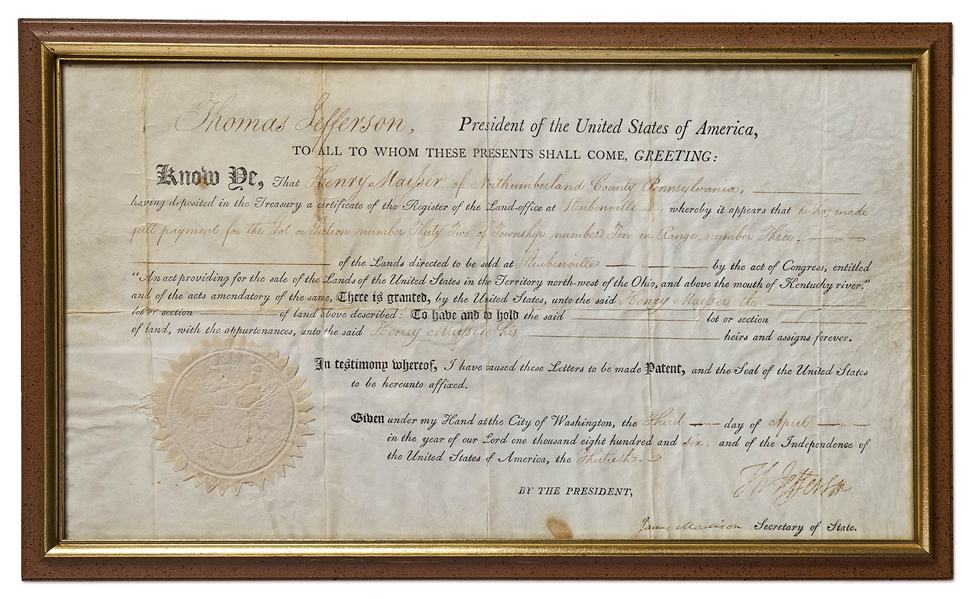 Thomas Jefferson, President of the United States of America,
TO ALL TO WHOM THESE PRESENTS SHALL COME, GREETING:
Know Ye, That Henry Maiser of Northumberland County Pennsylvania,
having deposited in the Treasury a certificate of the Register of the Land-office at Steubenville whereby it appears that he has made
full payment for the Lot or Section number Thirty Two of Township number Ten in Range number Three.
of the Lands directed to be sold at Steubenville by the act of Congress, entitled
"An act providing for the sale of the Lands of the United States in the Territory north-west of the Ohio, and above the mouth of Kentucky river,"
and of the acts amendatory of the same, There is granted, by the United States, unto the said Henry Maiser the
lot or section of land above described: To have and to hold the said lot or section
of land, with the appurtenances, unto the said Henry Maiser his heirs and assigns forever.
In testimony whereof, I have caused these Letters to be made Patent, and the Seal of the United States
to be hereunto affixed.
Given under my Hand at the City of Washington, the Third day of April
in the year of our Lord one thousand eight hundred and six, and of the Independence of
the United States of America, the Thirtieth.
Th: Jefferson
BY THE PRESIDENT,
James Madison Secretary of State.